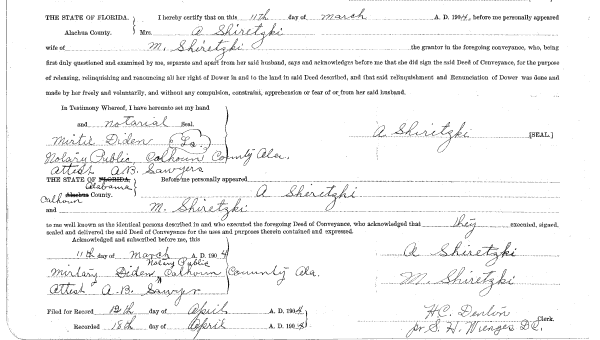 THE STATE OF FLORIDA, } I hereby certify that on this 11th day of March A. D. 1904, before me personally appeared
Alachua County. Mrs. A Shiretzki
wife of M. Shiretzki the grantor in the foregoing conveyance, who, being
first duly questioned and examined by me, separate and apart from her said husband, says and acknowledges before me that she did sign the said Deed of Conveyance, for the purpose
of releasing, relinquishing and renouncing all her right of Dower in and to the land in said Deed described, and that said relinquishment and Renunciation of Dower was done and
made by her freely and voluntarily, and without any compulsion, constraint, apprehension or fear of or from her said husband.
In Testimony Whereof, I have hereunto set my hand
and notarial Seal.
A Shiretzki [SEAL]
Diden
Notary Public, Calhoun County Ala.
Attest A.B. Sawyers
THE STATE OF FLORIDA, } Before me personally appeared
Alabama
Calhoun Alachua County. A Shiretzki
and M. Shiretzki
to me well known as the identical persons described in and who executed the foregoing Deed of Conveyance, who acknowledged that they executed, signed,
sealed and delivered the said Deed of Conveyance for the uses and purposes therein contained and expressed.
Acknowledged and subscribed before me, this
11th day of March A. D. 1904
A Shiretzki
Notary Public
Diden, Calhoun County Ala.
M. Shiretzki
Attest A.B. Sawyer
Filed for Record 12th day of April A. D. 1904
H.C. Denton Clerk.
Recorded 18th day of April A. D. 1904
pr. S. H. Wienges D.C.